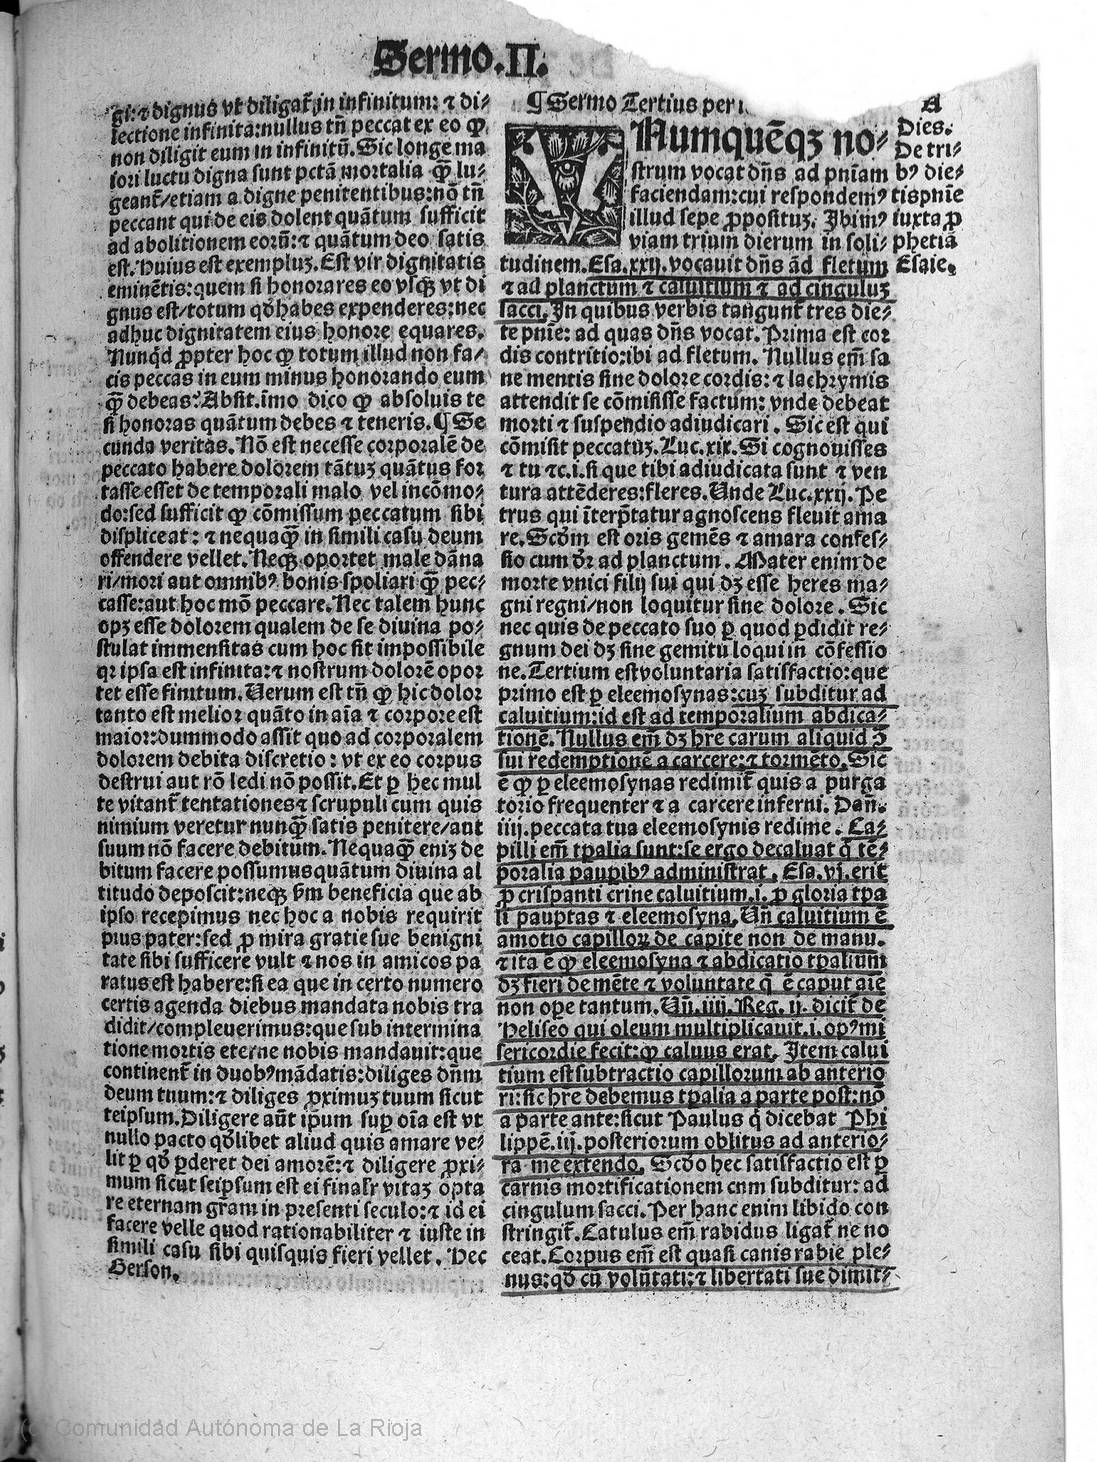 Sermo.II.
gi: ⁊ dignus vt diligat̄ in infinitum: ⁊ di-
lectione infinita: nullus tñ peccat ex eo ꝙ
non diligit eum in infinitū. Sic longe ma
iori luctu digna sunt pctā mortalia ꝙ̄ lu-
geant̄/etiam a digne penitentibus: nō tñ
peccant qui de eis dolent quātum sufficit
ad abolitionem eorū: ⁊ quātum deo satis
est. Huius est exempluꝫ. Est vir dignitatis
eminētis: quem si honorares eo vsqꝫ vt di
gnus est/totum qđ habes expenderes: nec
adhuc dignitatem eius honore equares.
Nunqd ꝓpter hoc ꝙ totum illud non fa/
cis peccas in eum minus honorando eum
ꝙ̄ debeas? Absit. īmo dico ꝙ absoluis te
si honoras quātum debes ⁊ teneris. ¶ Se
cunda veritas. Nō est necesse corporalē de
peccato habere dolorem tātuꝫ quātus for
tasse esset de temporali malo vel incōmo-
do: sed sufficit ꝙ cōmissum peccatum sibi
displiceat: ⁊ nequaꝙ̄ in simili casu deum
offendere vellet. Neqꝫ oportet male dāna
ri/mori aut omnibꝰ bonis spoliari ꝙ̄ pec-
casse: aut hoc mō peccare. Nec talem hunc
opꝫ esse dolorem qualem de se diuina po-
stulat immensitas cum hoc sit impossibile
qꝛ ipsa est infinita: ⁊ nostrum dolorē opor
tet esse finitum. Verum est tñ ꝙ hic dolor
tanto est melior quāto in aīa ⁊ corpore est
maior: dummodo assit quo ad corporalem
dolorem debita discretio: vt ex eo corpus
destrui aut rō ledi nō possit. Et ꝑ hec mul
te vitant̄ tentationes ⁊ scrupuli cum quis
nimium veretur nunꝙ̄ satis penitere/aut
suum nō facere debitum. Nequaꝙ̄ eniꝫ de
bitum facere possumus quātum diuina al
titudo deposcit: neqꝫ fm beneficia que ab
ipso recepimus nec hoc a nobis requirit
pius pater: sed ꝓ mira gratie sue benigni
tate sibi sufficere vult ⁊ nos in amicos pa
ratus est habere: si ea que in certo numero
certis agenda diebus mandata nobis tra
didit/compleuerimus: que sub intermina
tione mortis eterne nobis mandauit: que
continent̄ in duobꝰ mādatis: diliges dñm
deum tuum: ⁊ diliges ꝓximuꝫ tuum sicut
teipsum. Diligere aūt ip̄um suꝑ oīa est vt
nullo pacto qđlibet aliud quis amare ve-
lit ꝑ qđ ꝑderet dei amorē: ⁊ diligere ꝓxi-
mum sicut seipsum est ei finalr vitaꝫ opta
re eternam gr̄am in presenti seculo: ⁊ id ei
facere velle quod rationabiliter ⁊ iuste in
simili casu sibi quisquis fieri vellet. Hec
Gerson.
¶ Sermo Tertius per
Numquēqꝫ no-
strum vocat dñs ad pnīam
faciendam: cui respondemꝰ
illud sepe ꝓpositūꝫ. Ibimꝰ
viam trium dierum in soli-
tudinem. Esa. xxij. vocauit dñs ad fletum
⁊ ad planctum ⁊ caluitium ⁊ ad cinguluꝫ
sacci. In quibus verbis tangunt̄ tres die-
te pnīe: ad quas dñs vocat. Prima est cor
dis contritio: ibi ad fletum. Nullus em̄ sa
ne mentis sine dolore cordis: ⁊ lachrymis
attendit se cōmisisse factum: vnde debeat
morti ⁊ suspendio adiudicari. Sic est qui
cōmisit peccatuꝫ. Luc. xix. Si cognouisses
⁊ tu ⁊c. i. si que tibi adiudicata sunt ⁊ ven
tura attēderes: fleres. Unde Luc. xxij. Pe
trus qui īterp̄tatur agnoscens fleuit ama
re. Scđm est oris gemēs ⁊ amara confes-
sio cum dr̄ ad planctum. Mater enim de
morte vnici filij sui qui dꝫ esse heres ma-
gni regni/non loquitur sine dolore. Sic
nec quis de peccato suo ꝑ quod ꝑdidit re-
gnum dei dꝫ sine gemitu loqui in cōfessio
ne. Tertium est voluntaria satisfactio: que
primo est ꝑ eleemosynas: cuꝫ subditur ad
caluitium: id est ad temporalium abdica-
tionē. Nullus em̄ dꝫ hr̄e carum aliquid ī
sui redemptionē a carcere: ⁊ tormēto. Sic
ē ꝙ ꝑ eleemosynas redimit̄ quis a purga
torio frequenter ⁊ a carcere inferni. Dañ.
iiij. peccata tua eleemosynis redime. Ca-
pilli em̄ tꝑalia sunt: se ergo decaluat q̇ tē-
poralia pauꝑibꝰ administrat. Esa. vj. erit
ꝓ crispanti crine caluitium. i. ꝓ gloria tꝑa
li pauptas ⁊ eleemosyna. Uñ caluitium ē
amotio capilloꝝ de capite non de manu.
⁊ ita ē ꝙ eleemosyna ⁊ abdicatio tꝑalium
dꝫ fieri de mēte ⁊ voluntate q̇ ē caput aīe
non oꝑe tantum. Uñ. iiij. Reg. ij. dicit̄ de
Heliseo qui oleum multiplicauit. i. opꝰ mi
sericordie fecit: ꝙ caluus erat. Item calui
tium est subtractio capillorum ab anterio
ri: sic hr̄e debemus tꝑalia a parte post: nō
a parte ante: sicut Paulus q̇ dicebat Phi
lippē. iij. posteriorum oblitus ad anterio-
ra me extendo. Scđo hec satisfactio est ꝑ
carnis mortificationem cum subditur: ad
cingulum sacci. Per hanc enim libido con
stringit̄. Catulus em̄ rabidus ligat̄ ne no
ceat. Corpus em̄ est quasi canis rabie ple-
nus: qđ cū volūtati: ⁊ libertati sue dimit-
A
Dies.
De tri-
bꝰ die-
tis pnīe
iuxta ꝓ
phetiā
Esaie.
Comunidad Autónoma de La Rioja